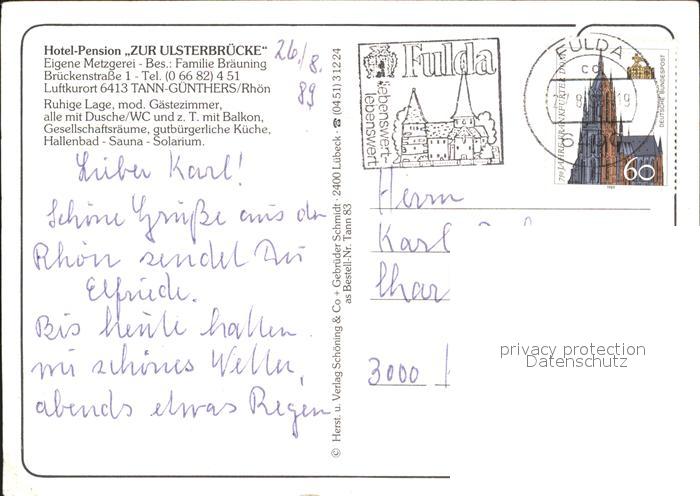 Hotel-Pension „ZUR ULSTERBRÜCKE"
Eigene Metzgerei - Bes.: Familie Bräuning
Brückenstraße 1 - Tel. (0 66 82) 4 51
Luftkurort 6413 TANN-GÜNTHERS/Rhön
Ruhige Lage, mod. Gästezimmer,
alle mit Dusche/WC und z. T. mit Balkon,
Gesellschaftsräume, gutbürgerliche Küche,
Hallenbad - Sauna - Solarium.
26./8.
89
Lieber Karl!
Schöne Grüße aus der
Rhön sendet Dir
Elfriede.
Bis heute hatten
wir schönes Wetter,
abends etwas Regen
© Herst. u. Verlag Schöning & Co + Gebrüder Schmidt · 2400 Lübeck · ☎ (04 51) 3 12 24
as Bestell-Nr. Tann 83
Fulda
liebenswert-
lebenswert
FULDA
cc
750 JAHRE FRANKFURTER DOM
DEUTSCHE BUNDESPOST
60
1989
Herrn
Karl
3000
privacy protection
Datenschutz